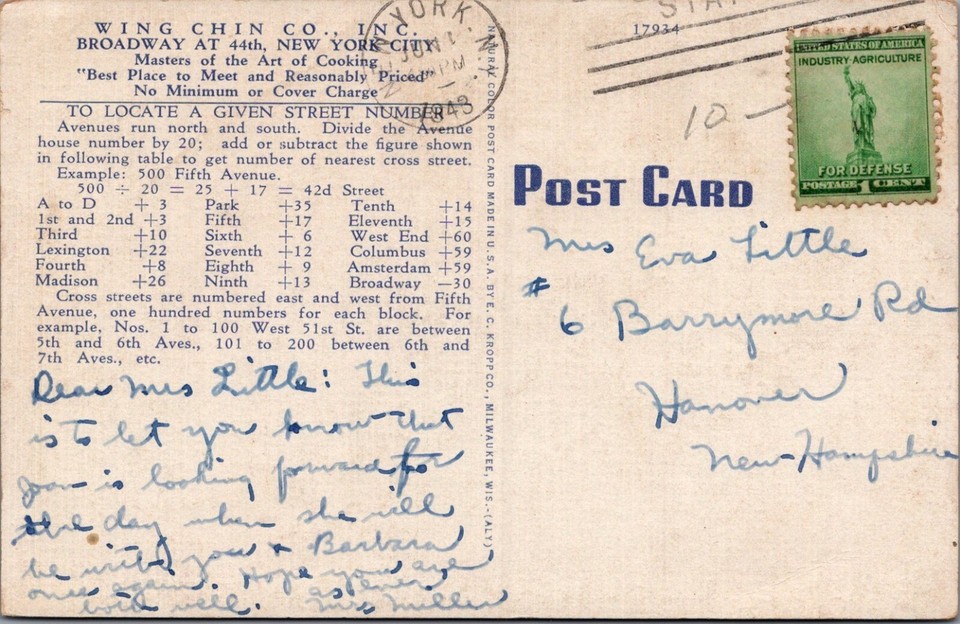 WING CHIN CO., INC.
BROADWAY AT 44th, NEW YORK CITY
Masters of the Art of Cooking
"Best Place to Meet and Reasonably Priced"
No Minimum or Cover Charge
TO LOCATE A GIVEN STREET NUMBER
Avenues run north and south. Divide the Avenue
house number by 20; add or subtract the figure shown
in following table to get number of nearest cross street.
Example: 500 Fifth Avenue.
500 ÷ 20 = 25 + 17 = 42d Street
A to D + 3 Park +35 Tenth +14
1st and 2nd +3 Fifth +17 Eleventh +15
Third +10 Sixth + 6 West End +60
Lexington +22 Seventh +12 Columbus +59
Fourth +8 Eighth + 9 Amsterdam +59
Madison +26 Ninth +13 Broadway —30
Cross streets are numbered east and west from Fifth
Avenue, one hundred numbers for each block. For
example, Nos. 1 to 100 West 51st St. are between
5th and 6th Aves., 101 to 200 between 6th and
7th Aves., etc.
Dear Mrs Little: This
is to let you know that
Joan is looking forward for
the day when she will
be with you & Barbara
once again. Hope you are
both well. as ever
Mrs Miller
NATURAL COLOR POST CARD MADE IN U.S.A. BY E. C. KROPP CO., MILWAUKEE, WIS.—(ALY)
YORK, N.Y.
JUN
PM
1943
17934
10 —
UNITED STATES OF AMERICA
INDUSTRY·AGRICULTURE
FOR DEFENSE
POSTAGE 1 CENT
POST CARD
Mrs Eva Little
#
6 Barrymore Rd
Hanover
New-Hampshire